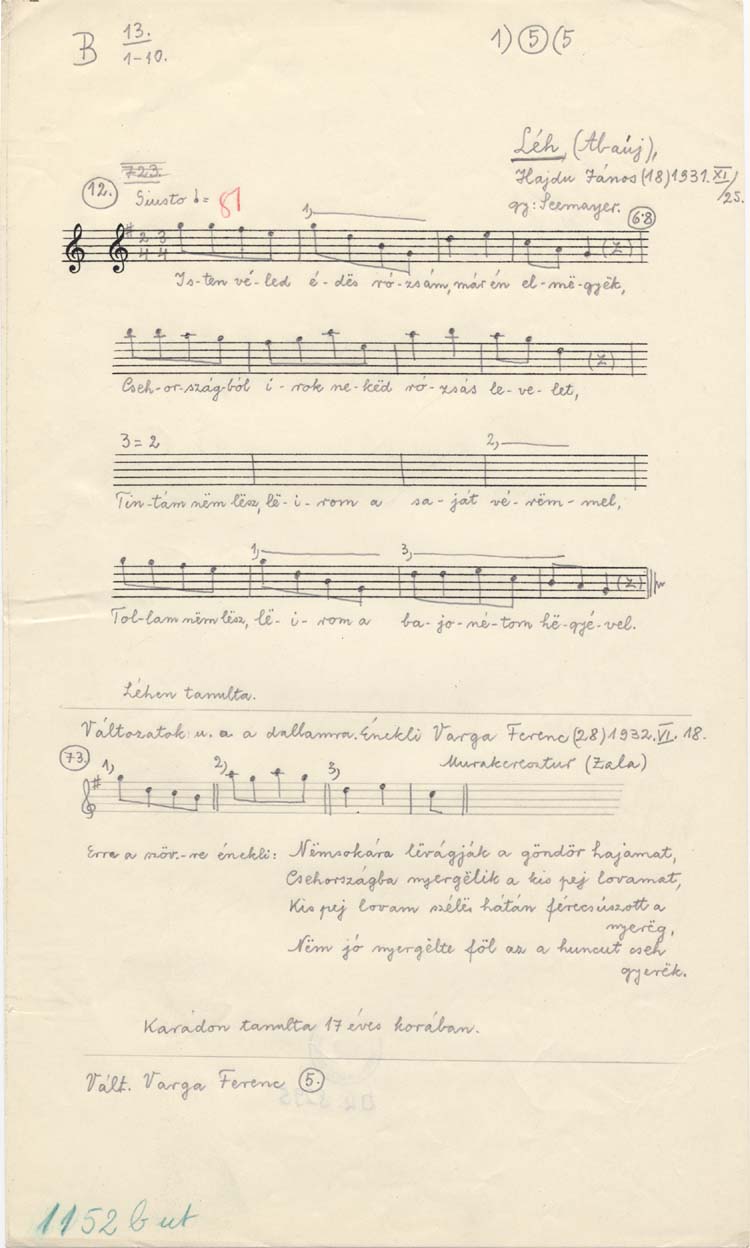 B 13. 1–10.
1) 5 (5
Léh, (Abaúj),
723.
Hajdu János (18) 1931. XI/25.
12. Giusto = 87
gy: Seemayer. 6·8
1,
2 3
4 4
Is-ten vé-led é-dës ró-zsám, már én el-më-gyëk,
Cseh-or-szág-ból í-rok ne-këd ró-zsás le-ve-let,
3 = 2 2,
Tin-tám nëm lësz, lë-í-rom a sa-ját vé-rëm-mel,
1, 3,
Tol-lam nëm lësz, lë-í-rom a ba-jo-né-tom hë-gyé-vel.
Léhen tanulta.
Változatok u. a. a dallamra. Énekli Varga Ferenc (28) 1932. VI. 18.
73. 1, 2, 3, Murakeresztur (Zala)
Erre a szöv.-re énekli: Nëmsokára lëvágják a göndör hajamat,
Csehországba nyergëlik a kis pej lovamat,
Kis pej lovam szélës hátán férecsúszott a
nyerëg,
Nëm jó nyergëlte föl az a huncut cseh
gyerëk.
Karádon tanulta 17 éves korában.
Vált. Varga Ferenc 5.
1152 b ut